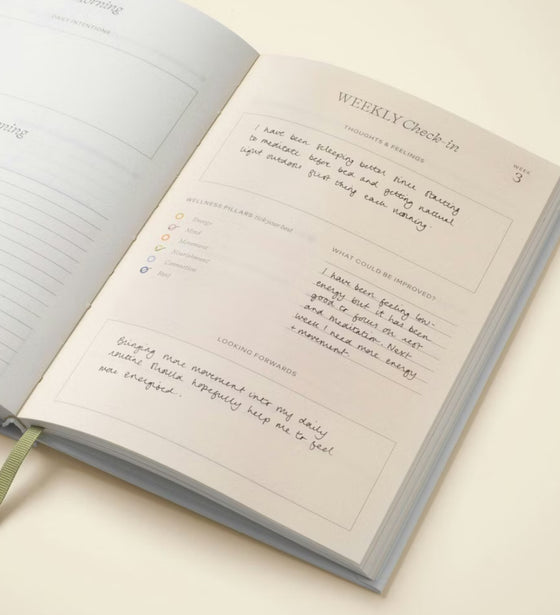 orning
DAILY INTENTIONS
ning
WEEKLY Check-in
WEEK
3
THOUGHTS & FEELINGS
I have been sleeping better since starting
to meditate before bed and getting natural
light outdoors first thing each morning.
WELLNESS PILLARS tick your best
Energy
Mind
Movement
Nourishment
Connection
Rest
WHAT COULD BE IMPROVED?
I have been feeling low-
energy but it has been
good to focus on rest
and meditation. Next
week I need more energy
+ movement.
LOOKING FORWARDS
Bringing more movement into my daily
routine should hopefully help me to feel
more energised.